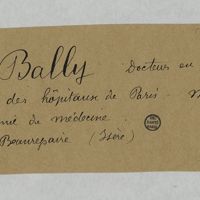 Bally Docteur en
des hôpitaux de Paris. M
mie de médecine.
Beaurepaire (Isère)